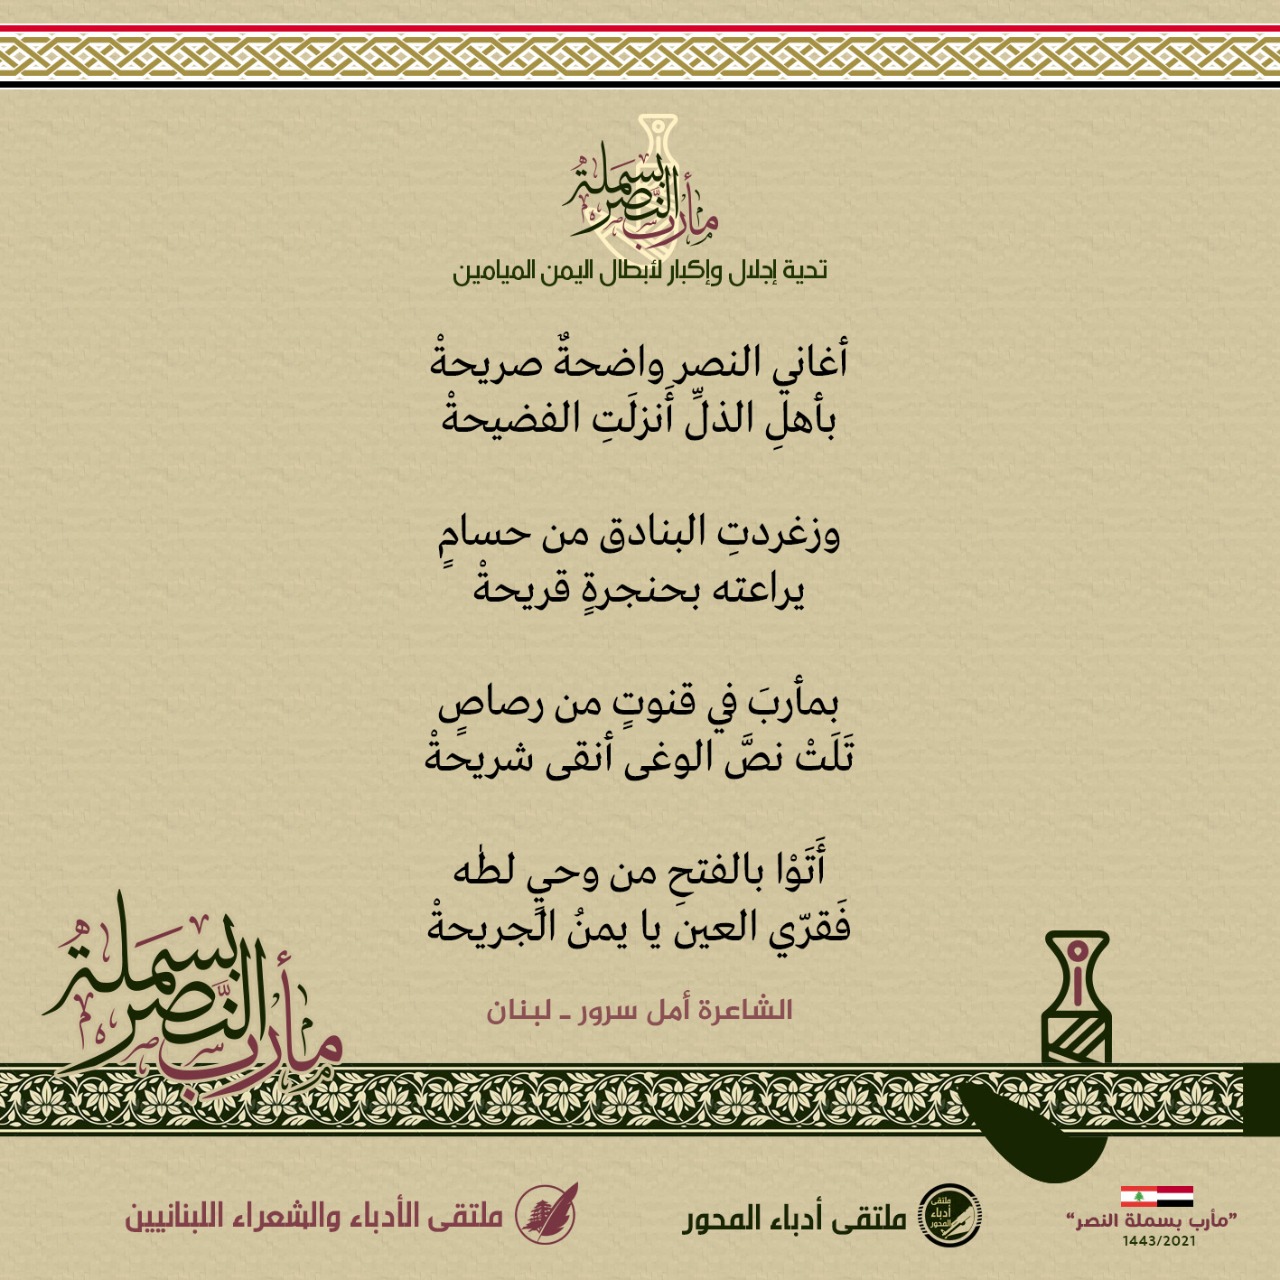 مأرب بسملة النصر
تحية إجلال وإكبار لأبطال اليمن الميامين
أغاني النصر واضحةٌ صريحةْ
بأهلِ الذلِّ أَنزلَتِ الفضيحةْ
وزغردتِ البنادق من حسامٍ
يراعته بحنجرةٍ قريحةْ
بمأربَ في قنوتٍ من رصاصٍ
تَلَتْ نصَّ الوغى أنقى شريحةْ
أَتَوْا بالفتحِ من وحيٍ لطٰه
فَقرّي العين يا يمنُ الجريحةْ
الشاعرة أمل سرور ـ لبنان
مأرب بسملة النصر
ملتقى الأدباء والشعراء اللبنانيين
ملتقى أدباء المحور
ملتقى أدباء المحور
”مأرب بسملة النصر“
1443/2021